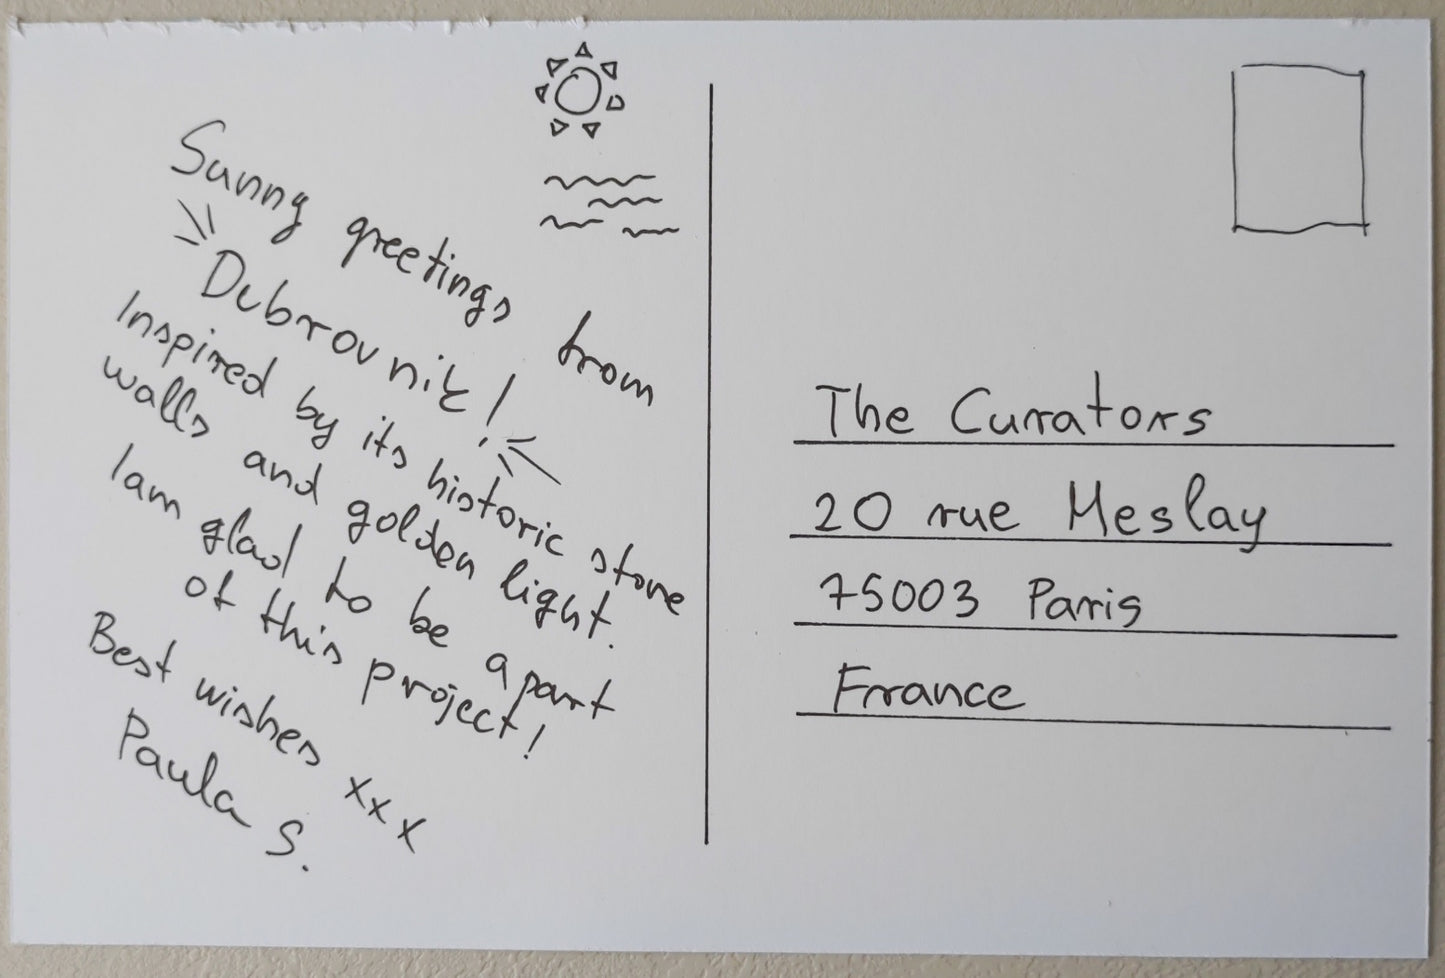 Sunny greetings from
Dubrovnik!
Inspired by its historic stone
walls and golden light.
I am glad to be a part
of this project!
Best wishes xxx
Paula S.
The Curators
20 rue Meslay
75003 Paris
France